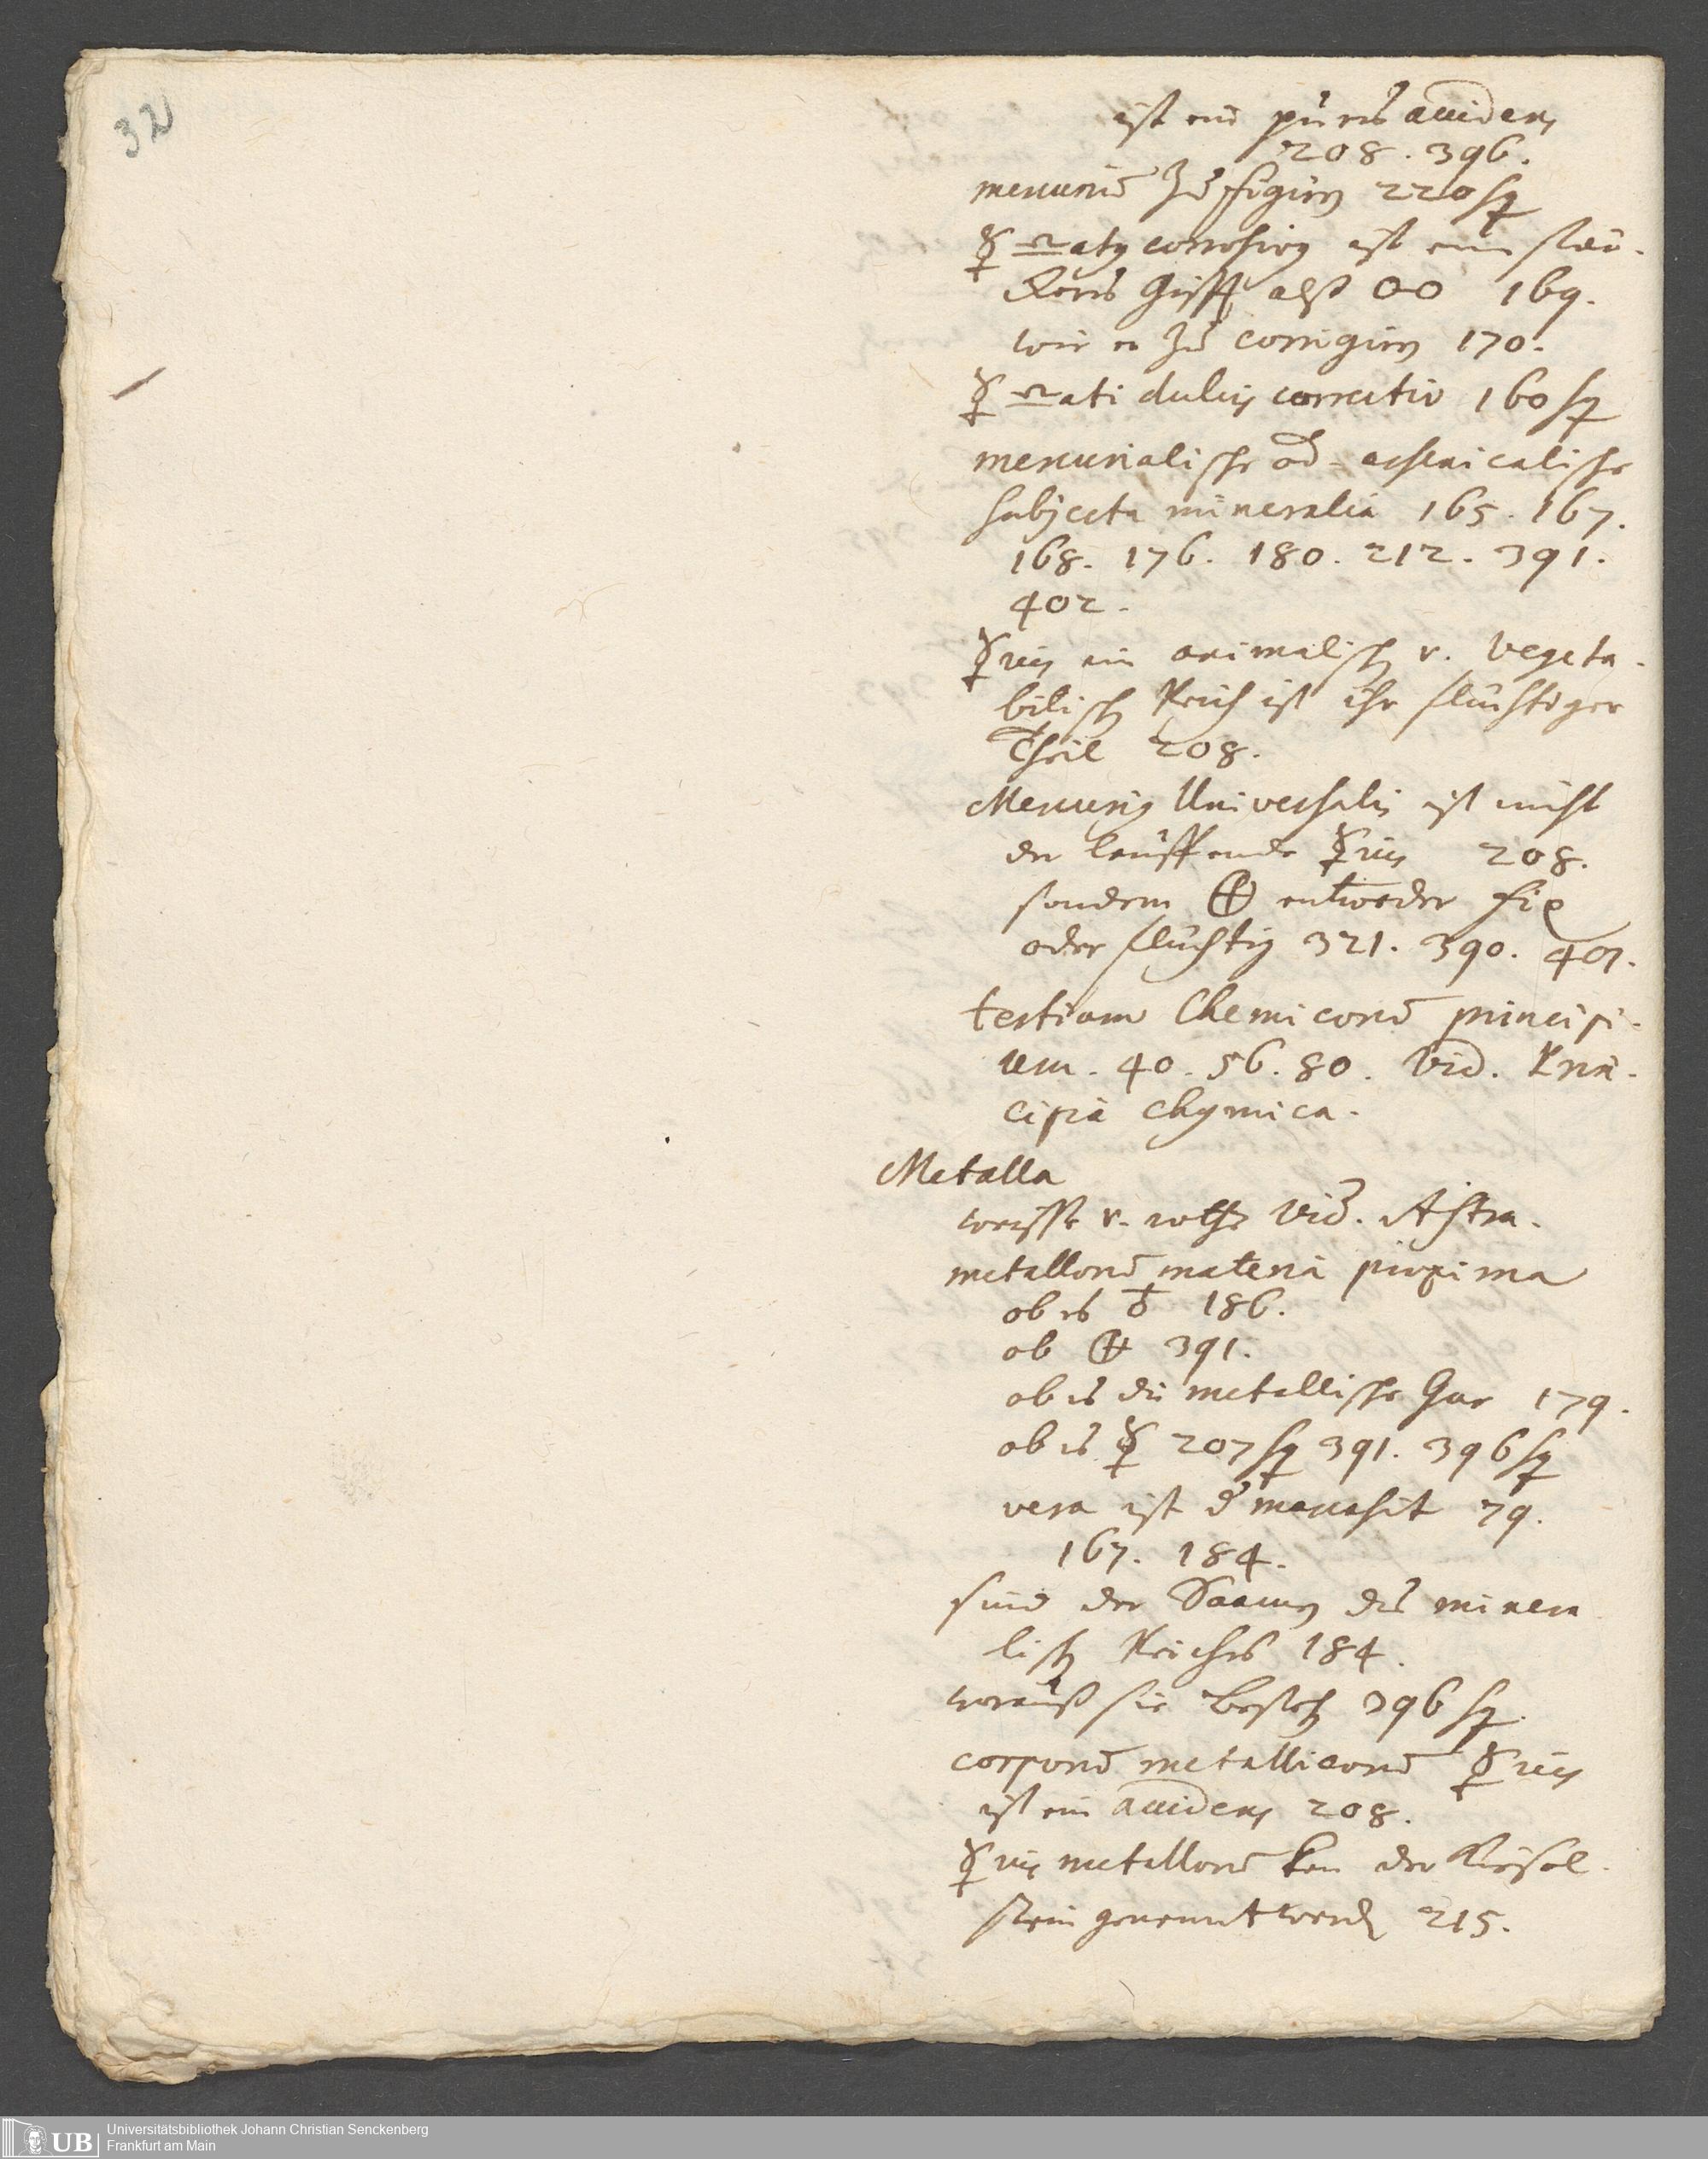 32
ist ein pures accidens
208. 396.
mercurium zu figiren 220 sq
☿ ♎atus corrosivus ist ein stär-
keres Gifft alß o-o 169.
wie er zu corrigiren 170.
☿ ♎ati dulcis correctio 160 sq
mercurialische od- arsenicalische
subjecta mineralia 165. 167.
168. 176. 180. 212. 391.
402.
☿rius im animalisch v. vegeta-
bilisch Reich ist ihr flüchtiger
Theil 208.
Mercurius Universalis ist nicht
der lauffende ☿rius 208.
sondern entweder fix
oder flüchtig 321. 390. 401.
tertium Chemicorum principi-
um. 40. 56. 80. Vid. Prin-
cipia chymica.
Metalla
weisse v. rothe vid. Astra.
metallorum materia proxima
ob es ♁ 186.
ob 391.
ob es die metallische Gur 179.
ob es ☿ 207 sq 391. 396 sq
vera ist d' marcasit 79.
167. 184.
sind der Saamen des minera
lisch Reiches 184.
worauß sie bestehen 396 sq.
corporum metallicorum ☿rius
ist ein accidens 208.
☿rius metallorum kan der Kiesel-
stein genennt werden 215.
UB
Universitätsbibliothek Johann Christian Senckenberg
Frankfurt am Main